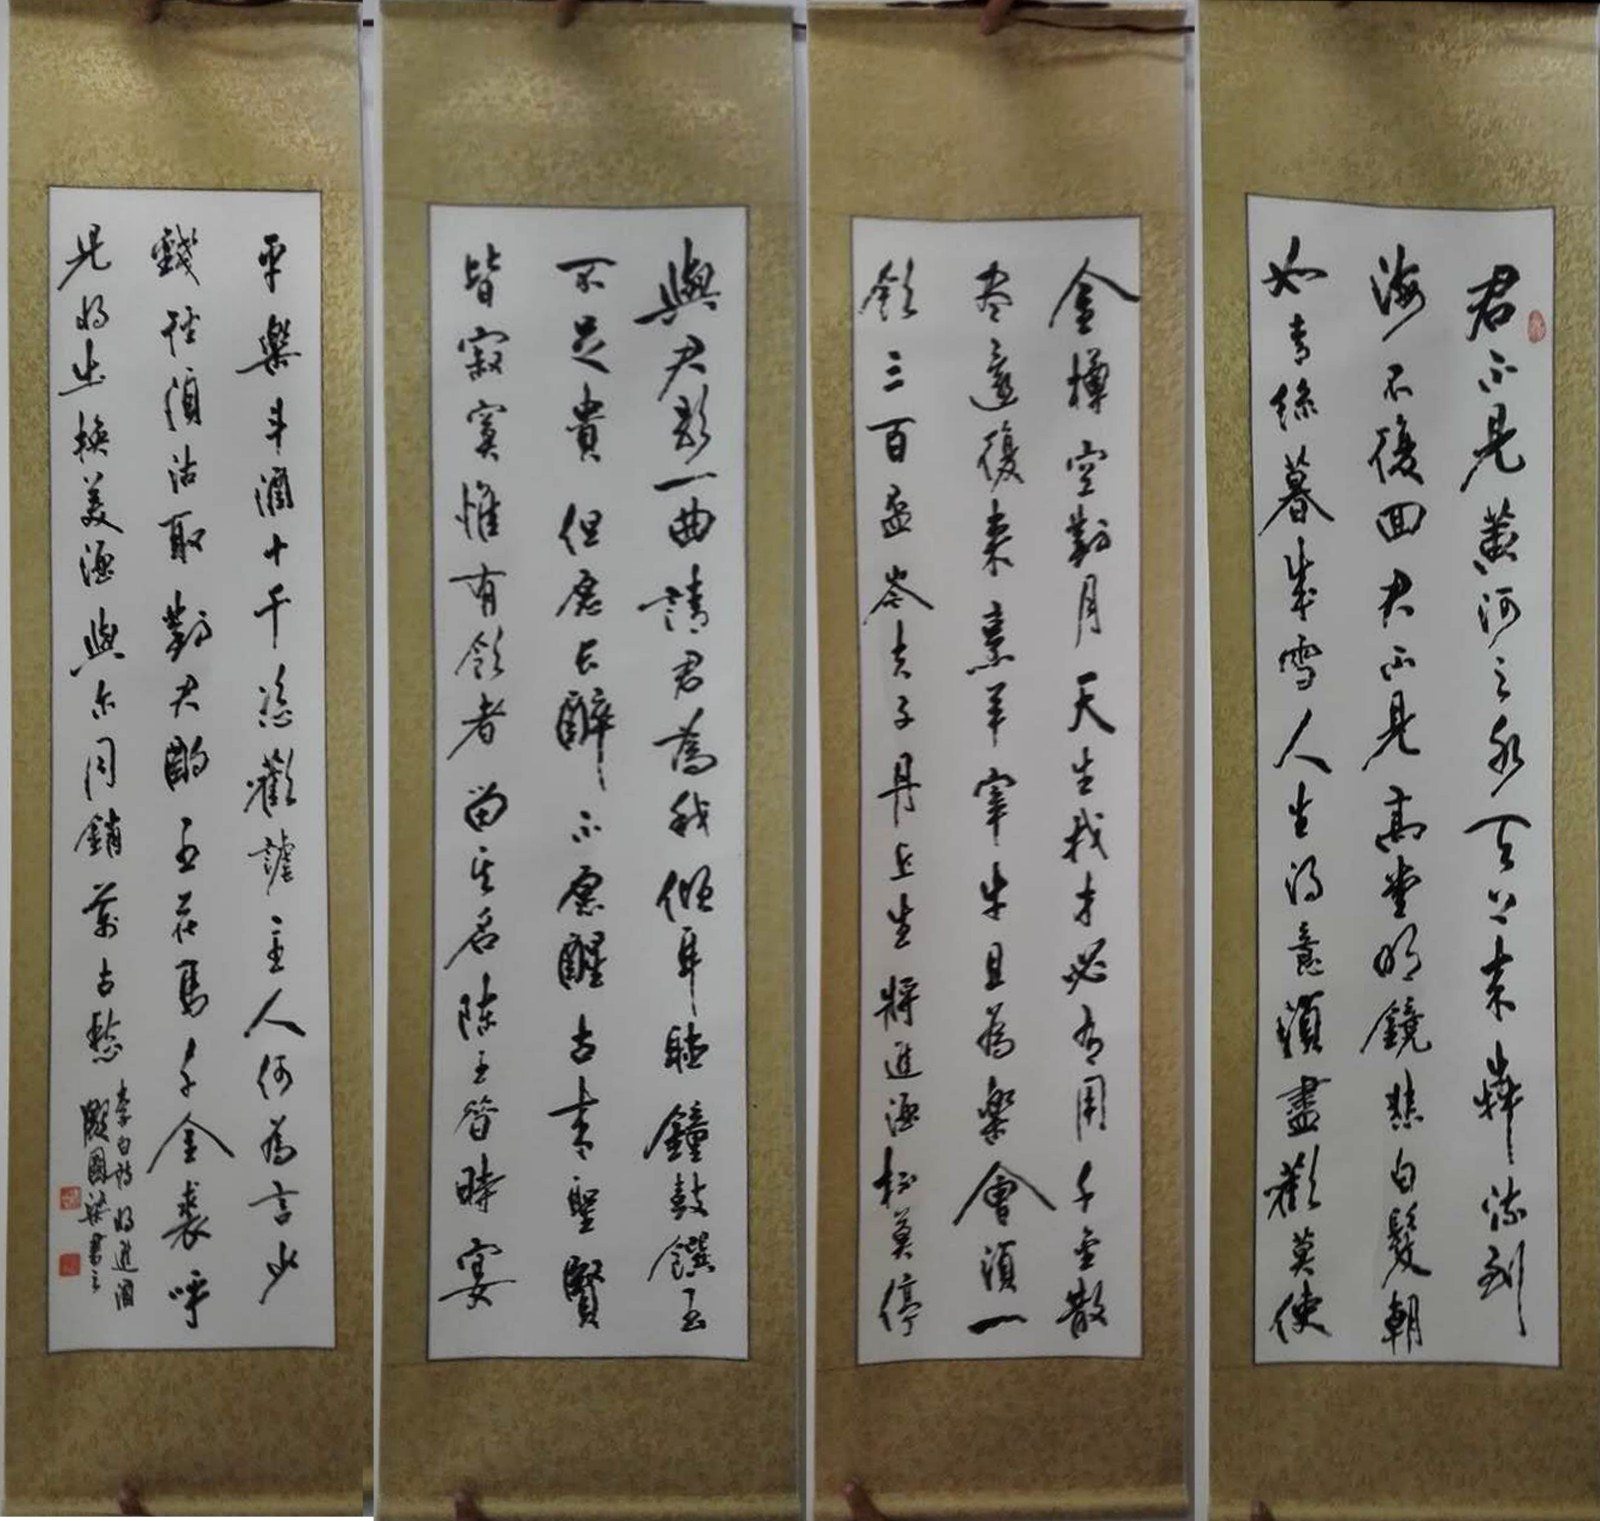 君不見黃河之水天上來犇流到
海不復回君不見高堂明鏡悲白髮朝
如青絲暮成雪人生得意須盡歡莫使
金樽空對月天生我才必有用千金散
尽還復來烹羊宰牛且為樂會須一
飲三百盃岑夫子丹丘生將進酒杯莫停
與君歌一曲請君為我傾耳聽鐘鼓饌玉
不足貴但愿長醉不愿醒古來聖賢
皆寂寞惟有飲者留其名陳王昔時宴
平樂斗酒十千恣歡謔主人何為言少
錢徑須沽取對君酌五花馬千金裘呼
兒將出換美酒與尔同銷萬古愁
李白詩將進酒
國梁書之